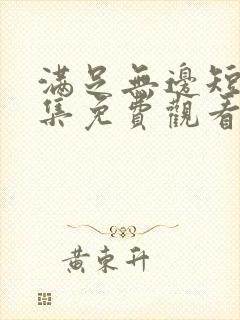 滿足無邊短
集免費觀看
黃東升